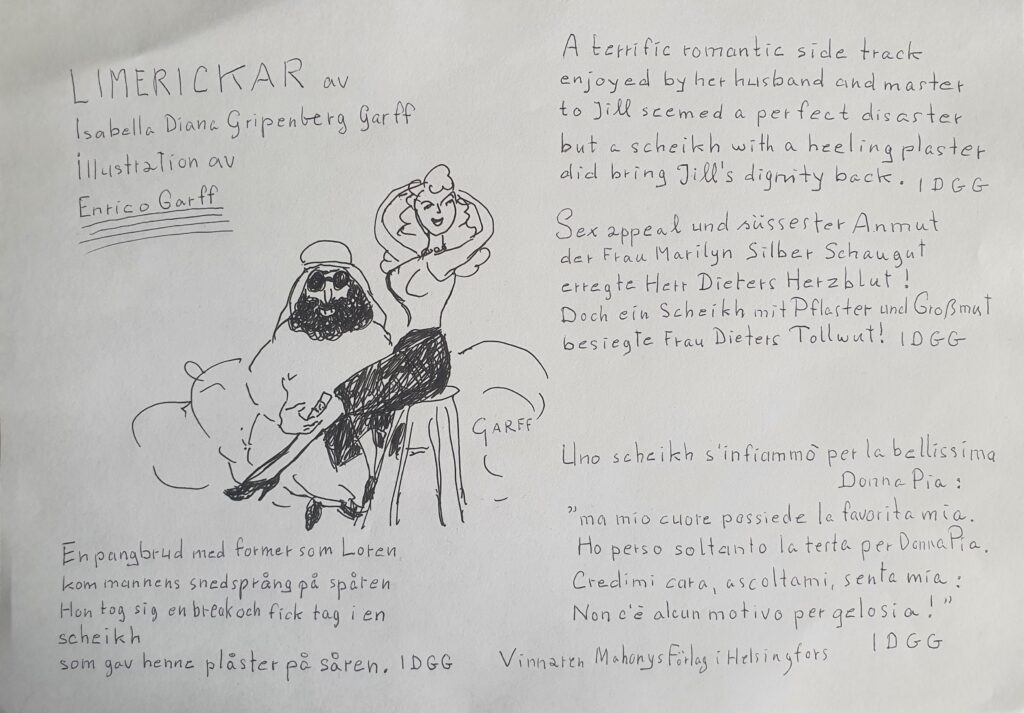 LIMERICKAR av
Isabella Diana Gripenberg Garff
illustration av
Enrico Garff
GARFF
En pangbrud med former som Loren
kom mannens snedsprång på spåren
Hon tog sig en break och fick tag i en
scheikh
som gav henne plåster på såren. IDGG
A terrific romantic side track
enjoyed by her husband and master
to Jill scemed a perfect disaster
but a scheikh with a heeling plaster
did bring Jill's dignity back. IDGG
Sex appeal und süssester Anmut
der Frau Marilyn Silber Schaugut
erregte Herr Dieters Herzblut!
Doch ein Scheikh mit Pflaster und Großmut
besiegte Frau Dieters Tollwut! IDGG
Uno scheikh s'infiammò per la bellissima
Donna Pia:
"ma mio cuore possiede la favorita mia.
Ho perso soltanto la testa per Donna Pia.
Credimi cara, ascoltami, senta mia:
Non c'è alcun motivo per gelosia!"
IDGG
Vinnaren Mahonys Förlag i Helsingfors